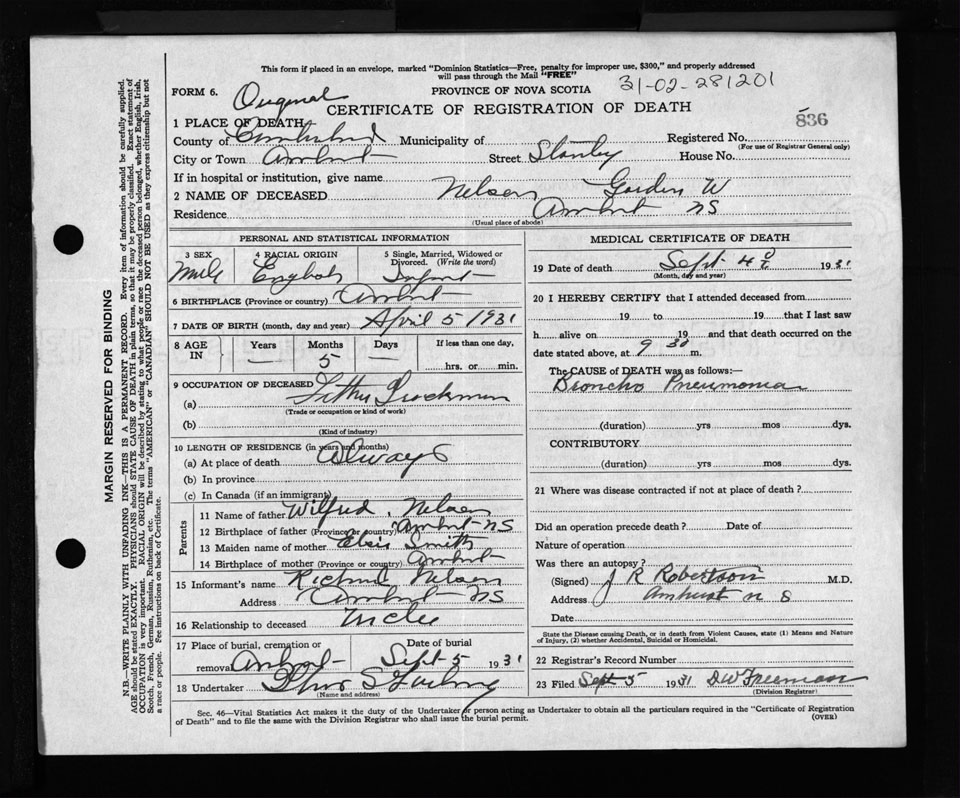 This form if placed in an envelope, marked "Dominion Statistics—Free, penalty for improper use, $300," and properly addressed
will pass through the Mail "FREE"
FORM 6. Original PROVINCE OF NOVA SCOTIA 31-02-281201
CERTIFICATE OF REGISTRATION OF DEATH
836
1 PLACE OF DEATH
County of Cumberland Municipality of Registered No.
(For use of Registrar General only)
City or Town Amherst Street Stanley House No.
If in hospital or institution, give name
2 NAME OF DECEASED Nelson Gordon W
Residence Amherst NS
(Usual place of abode)
PERSONAL AND STATISTICAL INFORMATION
3 SEX 4 RACIAL ORIGIN 5 Single, Married, Widowed or Divorced. (Write the word)
Male English
6 BIRTHPLACE (Province or country) Amherst
7 DATE OF BIRTH (month, day and year) April 5 1931
8 AGE IN Years Months Days If less than one day,
5 hrs. or min.
9 OCCUPATION OF DECEASED
(a)
(Trade or occupation or kind of work)
(b)
(Kind of industry)
10 LENGTH OF RESIDENCE (in years and months)
(a) At place of death Always
(b) In province
(c) In Canada (if an immigrant)
Parents
11 Name of father Wilfred Nelson
12 Birthplace of father (Province or country) Amherst NS
13 Maiden name of mother Smith
14 Birthplace of mother (Province or country) Amherst
15 Informant's name Richard Nelson
Address Amherst NS
16 Relationship to deceased Uncle
17 Place of burial, cremation or removal Amherst Date of burial Sept 5 1931
18 Undertaker
(Name and address)
MEDICAL CERTIFICATE OF DEATH
19 Date of death Sept 4 1931
(Month, day and year)
20 I HEREBY CERTIFY that I attended deceased from
19 to 19 that I last saw
h alive on 19 and that death occurred on the
date stated above, at 9 30 m.
The CAUSE of DEATH was as follows:—
Broncho Pneumonia
(duration) yrs mos dys.
CONTRIBUTORY
(duration) yrs mos dys.
21 Where was disease contracted if not at place of death?
Did an operation precede death? Date of
Nature of operation
Was there an autopsy?
(Signed) J R Robertson M.D.
Address Amherst N S
Date
State the Disease causing Death, or in death from Violent Causes, state (1) Means and Nature
of Injury, (2) whether Accidental, Suicidal or Homicidal.
22 Registrar's Record Number
23 Filed Sept 5 1931 DW Freeman
(Division Registrar)
Sec. 46—Vital Statistics Act makes it the duty of the Undertaker or person acting as Undertaker to obtain all the particulars required in the "Certificate of Registration
of Death" and to file the same with the Division Registrar who shall issue the burial permit. (OVER)
MARGIN RESERVED FOR BINDING
N.B.—WRITE PLAINLY WITH UNFADING INK—THIS IS A PERMANENT RECORD. Every item of information should be carefully supplied.
AGE should be stated EXACTLY. PHYSICIANS should STATE CAUSE OF DEATH in plain terms, so that it may be properly classified. Exact statement of
OCCUPATION is very important. RACIAL ORIGIN will be described by stating to what people or race the deceased person belonged, whether English, Irish,
Scotch, French, German, Russian, Ruthenian, etc. The terms "AMERICAN" or "CANADIAN" SHOULD NOT BE USED as they express citizenship but not
a race or people. See instructions on back of Certificate.